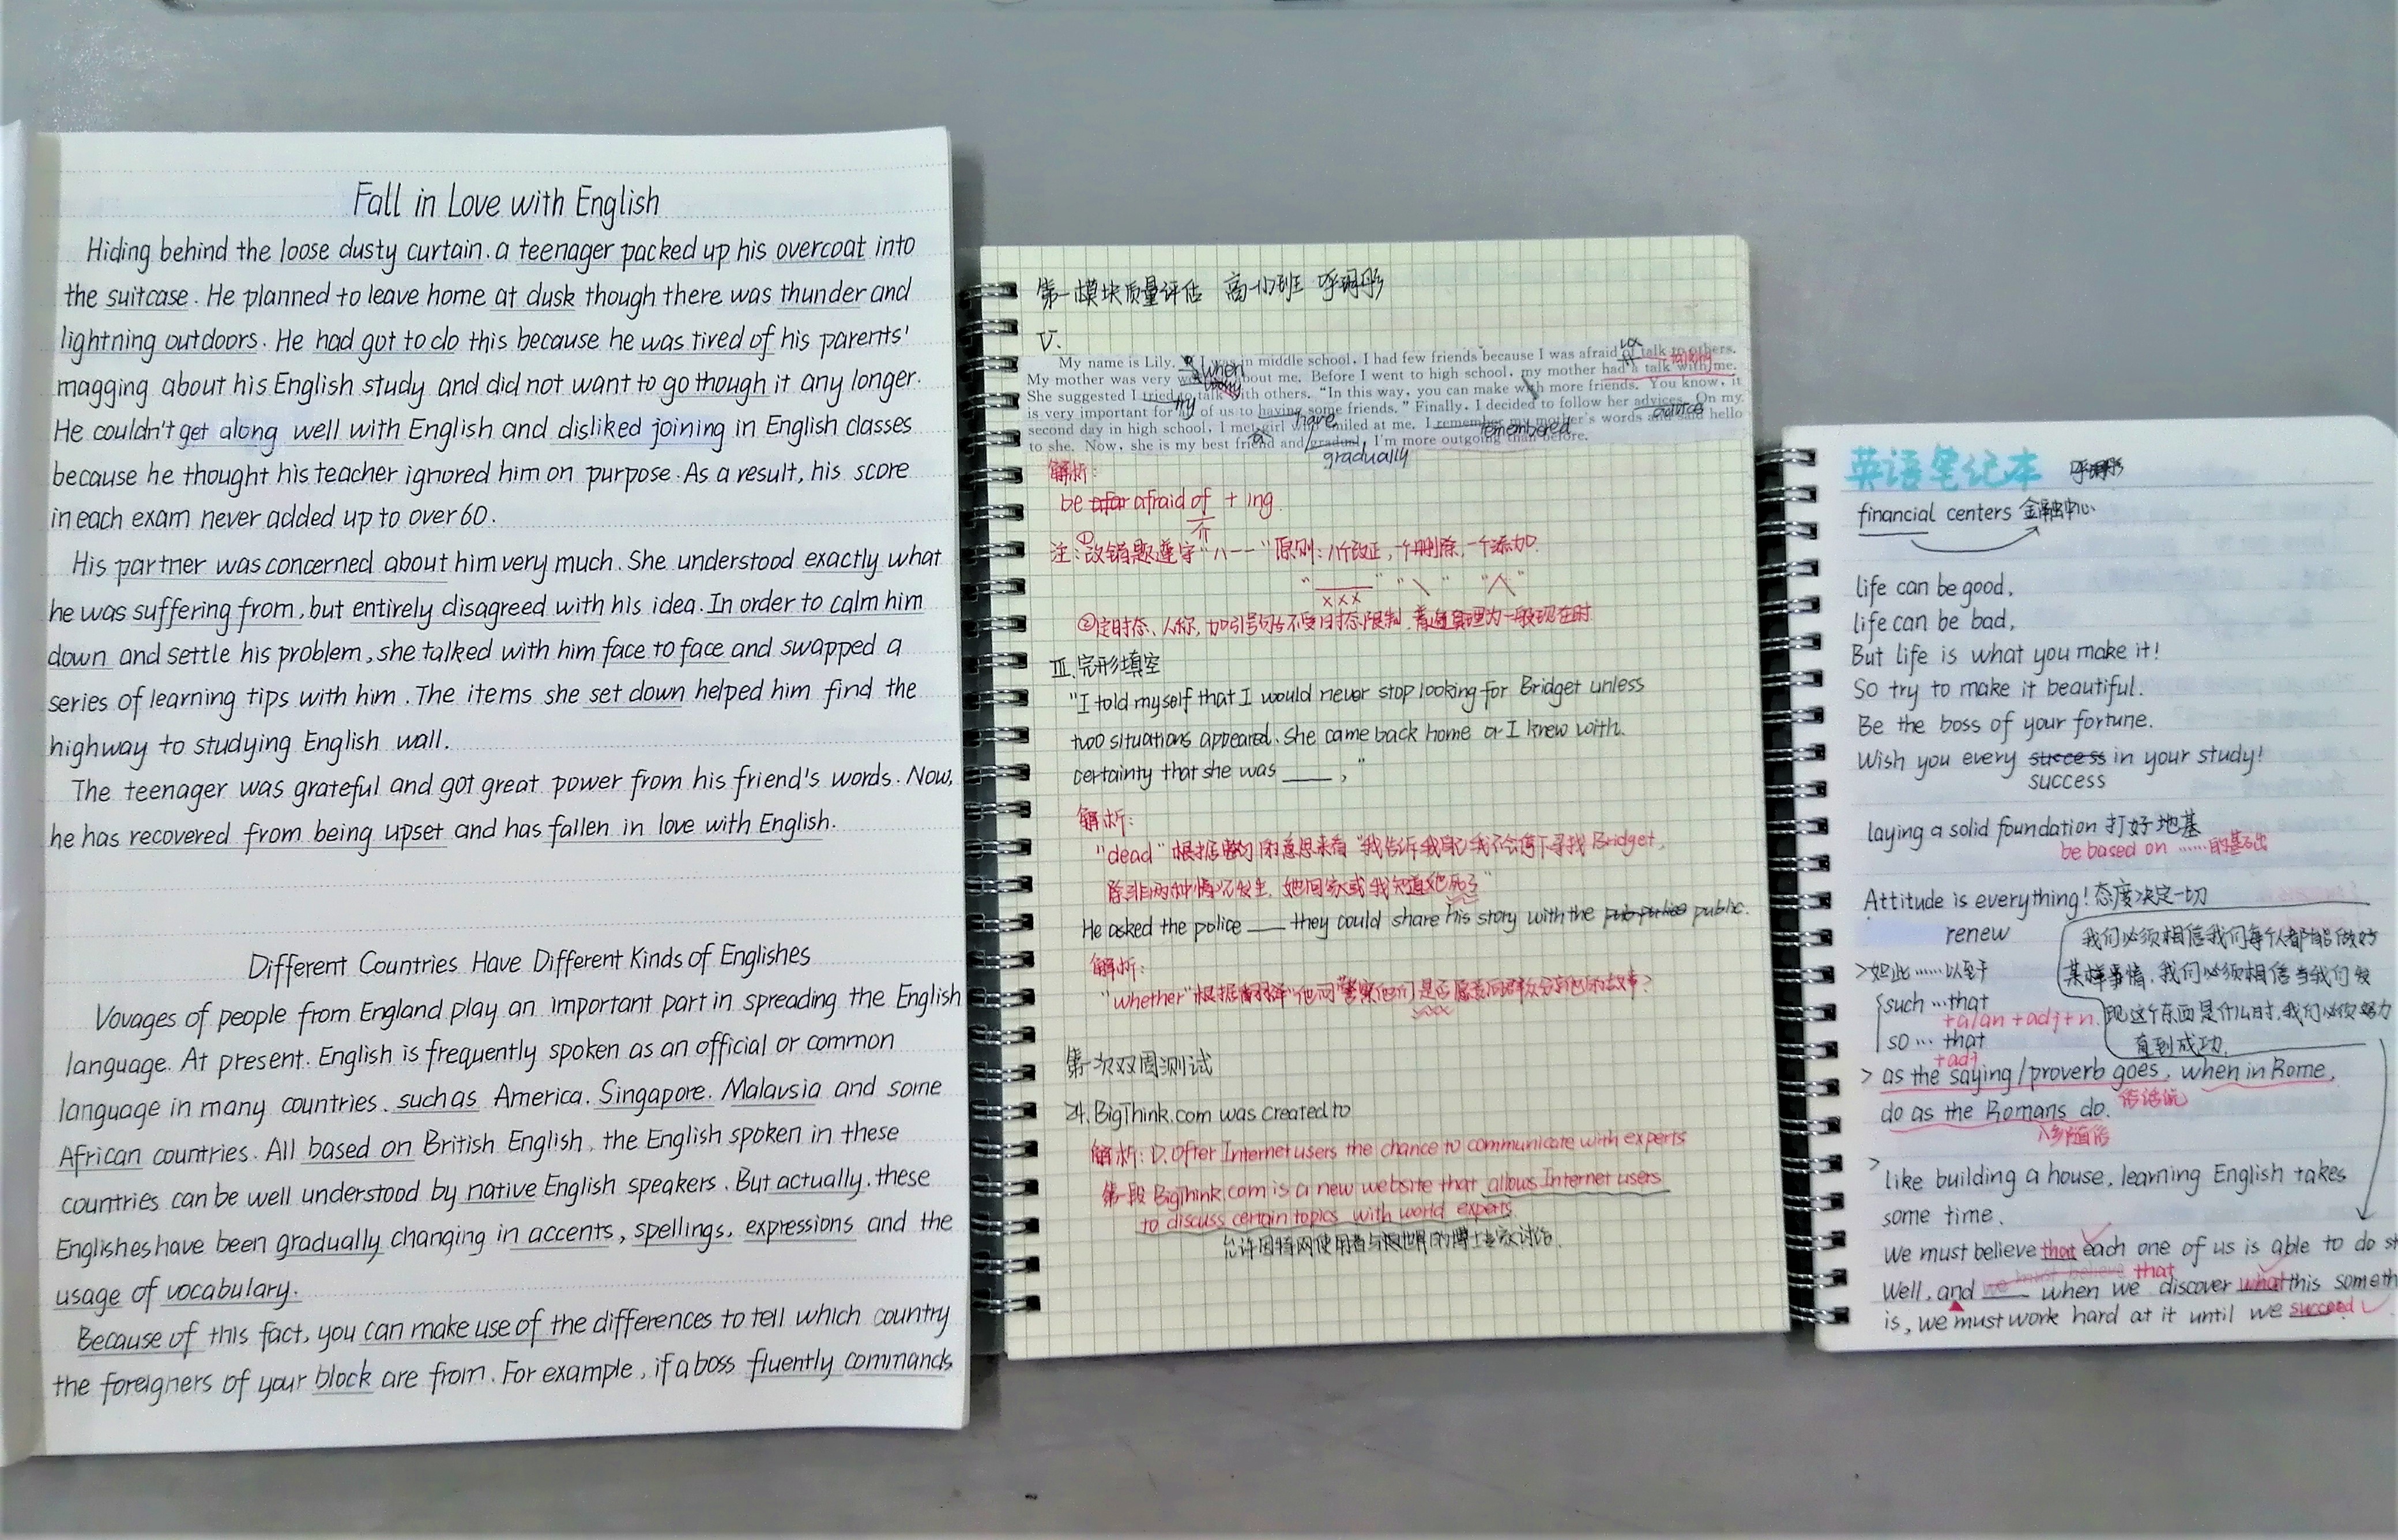 Fall in Love with English
Hiding behind the loose dusty curtain. a teenager packed up his overcoat into
the suitcase. He planned to leave home at dusk though there was thunder and
lightning outdoors. He had got to do this because he was tired of his parents'
magging about his English study and did not want to go though it any longer.
He couldn't get along well with English and disliked joining in English classes
because he thought his teacher ignored him on purpose. As a result, his score
in each exam never added up to over 60.
His partner was concerned about him very much. She understood exactly what
he was suffering from, but entirely disagreed with his idea. In order to calm him
down and settle his problem, she talked with him face to face and swapped a
series of learning tips with him. The items she set down helped him find the
highway to studying English wall.
The teenager was grateful and got great power from his friend's words. Now,
he has recovered from being upset and has fallen in love with English.
Different Countries Have Different Kinds of Englishes
Vovages of people from England play an important part in spreading the English
language. At present. English is frequently spoken as an official or common
language in many countries. such as America. Singapore. Malavsia and some
African countries. All based on British English, the English spoken in these
countries can be well understood by native English speakers. But actually, these
Englishes have been gradually changing in accents, spellings, expressions and the
usage of vocabulary.
Because of this fact, you can make use of the differences to tell which country
the foreigners of your block are from. For example, if a boss fluently commands
第一模块质量评估 高一
V.
My name is Lily. when I was in middle school, I had few friends because I was afraid of talk to others. talking
My mother was very about me. Before I went to high school, my mother had a talk with me.
She suggested I tried to talk with others. "In this way, you can make with more friends. You know, it
try
is very important for of us to having some friends." Finally, I decided to follow her advices. On my
have advice
second day in high school, I met girl smiled at me. I remember my mother's words and said hello
a remembered
to she. Now, she is my best friend and gradual, I'm more outgoing than before.
gradually
解析:
be afraid of + ing
介
注:①改错题遵守"八一一"原则:八个改正,一个删除,一个添加.
"xxx" "\" "∧"
②定时态、人称,加引号句占不受时态限制,普遍真理为一般现在时
III.完形填空
"I told myself that I would never stop looking for Bridget unless
two situations appeared. she came back home or I knew with.
certainty that she was ____ ,"
解析:
"dead"根据句的意思来看"我告诉我自己我不会停下寻找Bridget,
除非两种情况发生,她回家或我知道她死了"
He asked the police ____ they could share his story with the public.
解析:
"whether"根据 "他问警察他们是否愿意向群众分享他的故事?
第一次双周测试
24. BigThink.com was created to
解析:D.Ofter Internet users the chance to communicate with experts
第一段 BigThink.com is a new website that allows Internet users
to discuss certain topics with world experts.
允许因特网使用者与
英语笔记本
financial centers 金融中心
life can be good,
life can be bad,
But life is what you make it!
So try to make it beautiful.
Be the boss of your fortune.
Wish you every success in your study!
success
laying a solid foundation 打好地基
be based on ......的基础
Attitude is everything! 态度决定一切
renew
我们必须相信我们每个人都能做好
某样事情,我们必须相信当我们发
现这个东西是什么时,我们必须努力
直到成功.
>如此......以至于
such ...that
+a/an +adj+n.
so ... that
+adj
> as the saying/proverb goes, when in Rome,
do as the Romans do. 俗话说
入乡随俗
> like building a house, learning English takes
some time.
we must believe that each one of us is able to do
Well, and we must believe that when we discover what this someth
is, we must work hard at it until we succeed